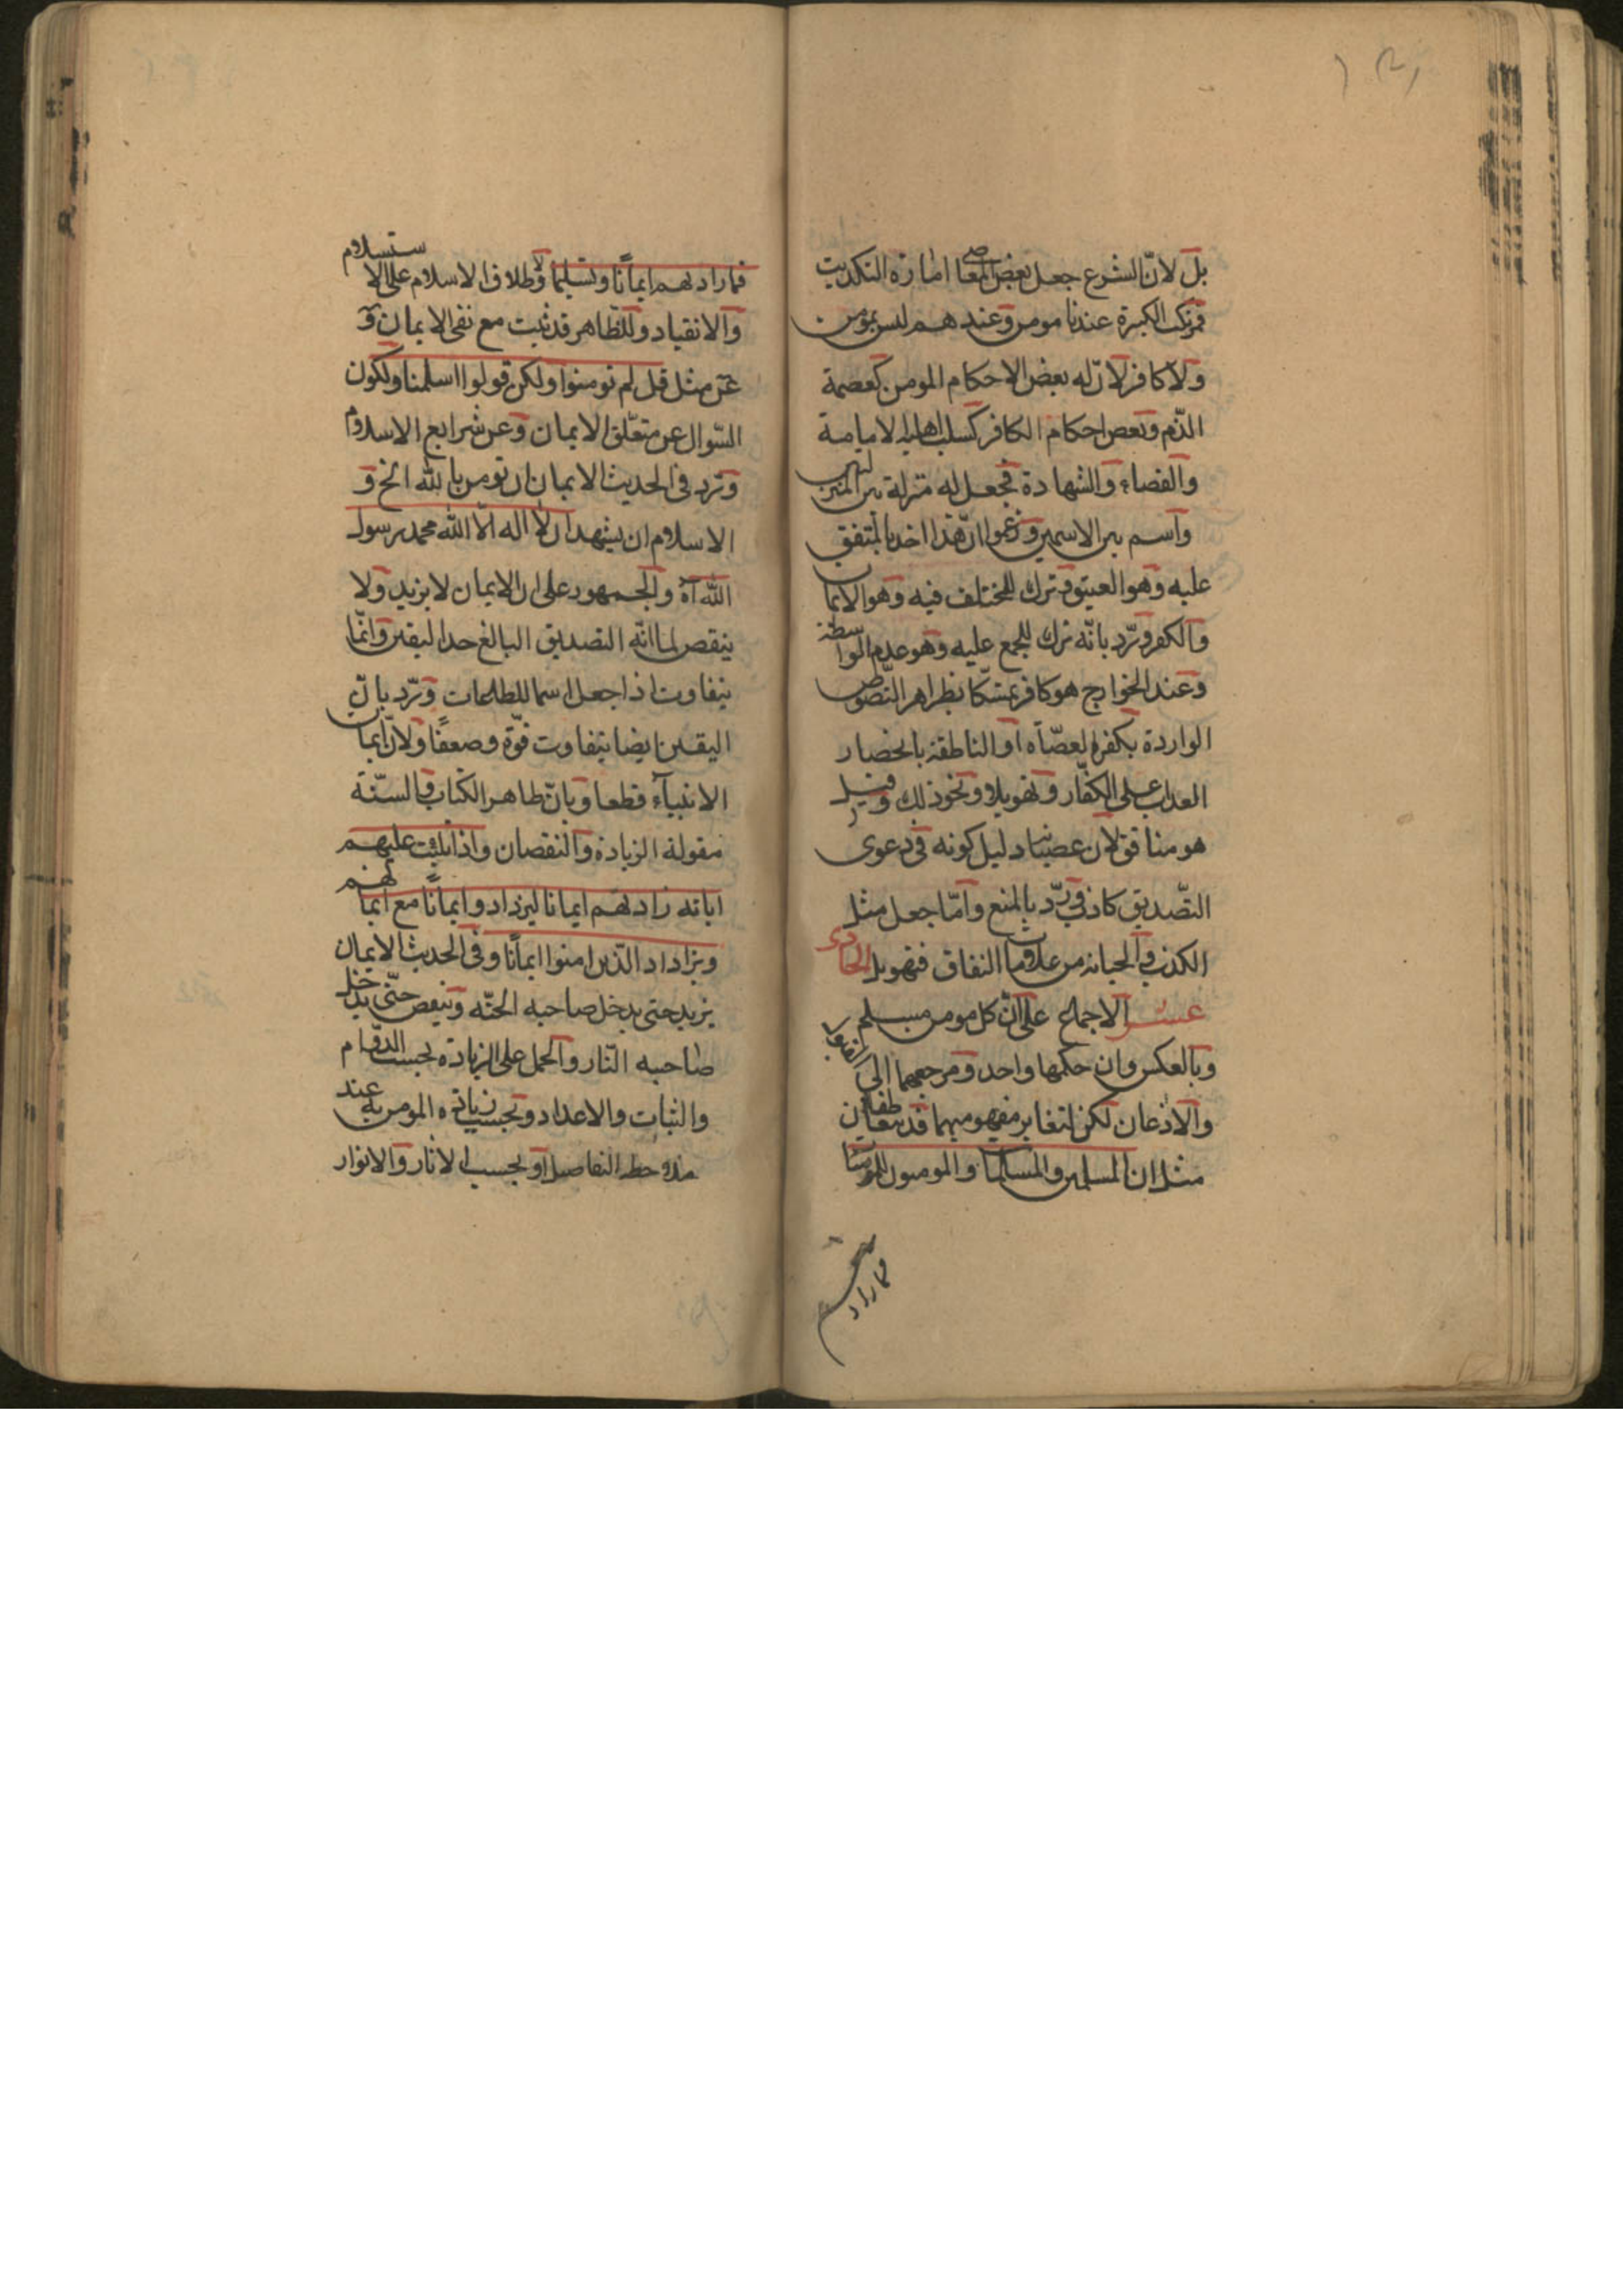 بل لانّ الشرع جعل بعض المعاصي امارة التكذيب
فمرتكب الكبيرة عندنا مومن وعندهم ليس بمومن
ولا كافر لانّ له بعض الاحكام المومن كعصمة
الدّم وبعض احكام الكافر كسلب اهلية الامامية
والقضاء والشهادة فجعل له منزلة بين المنزلتين
واسم بين الاسمين وزعموا انّ هذا اخذ بالمتفق
عليه وهو الفسق وترك للمختلف فيه وهو الايمان
والكفر وردّ بانّه ترك للمجمع عليه وهو عدم الواسطة
وعند الخوارج هو كافر تمسّكا بظواهر النّصوص
الواردة بكفر العصاة او الناطقة بانحصار
العذاب على الكفّار و ونحو ذلك وقيل
هو منافق لان عصيانه دليل كونه في دعوى
التّصديق كاذب وردّ بالمنع وامّا جعل مثل
الكذب والخيانة من علامات النفاق فتهويل الحادى
عشر الاجماع على انّ كل مومن مسلم
وبالعكس وان حكمهما واحد ومرجعهما الى القبول
والاذعان لكن لتغاير مفهوميهما قد يتعاطفان
مثل ان المسلمين والمسلمات والمومنون المومنات
فما زادهم
فما زادهم ايمانًا وتسليما ولاطلاق الاسلام على الاستسلام
والانقياد وللظاهر قد ثبت مع نفى الايمان و
عن مثل قل لم تومنوا ولكن قولوا اسلمنا ولكون
السّوال عن متعلّق الايمان وعن شرايع الاسلام
وترد فى الحديث الايمان ان تومن بالله الخ و
الاسلام ان يشهد ان لا اله الّا الله محمد رسول
الله آه والجمهور على ان الايمان لا يزيد ولا
ينقص لما انّه التصديق البالغ حد اليقين وانّما
يتفاوت اذا جعل اسما للطاعات وترّد بانّ
اليقين ايضا يتفاوت قوّة وضعفًا ولانّ ايمان
الانبيآء قطعا وبانّ ظاهر الكتاب والسّنة
مقولة الزيادة والنقصان واذا تليت عليهم
اياته زادتهم ايمانا ليزدادوا ايمانًا مع ايمانهم
ويزاداد الّذين امنوا ايمانًا وفى الحديث الايمان
يزيد حتى يدخل صاحبه الجنّه وينقص حتّى يدخل
صاحبه النّار والحمل على الزيادة بحسب الدّوام
والثبات والاعداد وبحسب زيادة المومن به عند
ملاحظه التفاصيل او بحسب الاثار والانوار